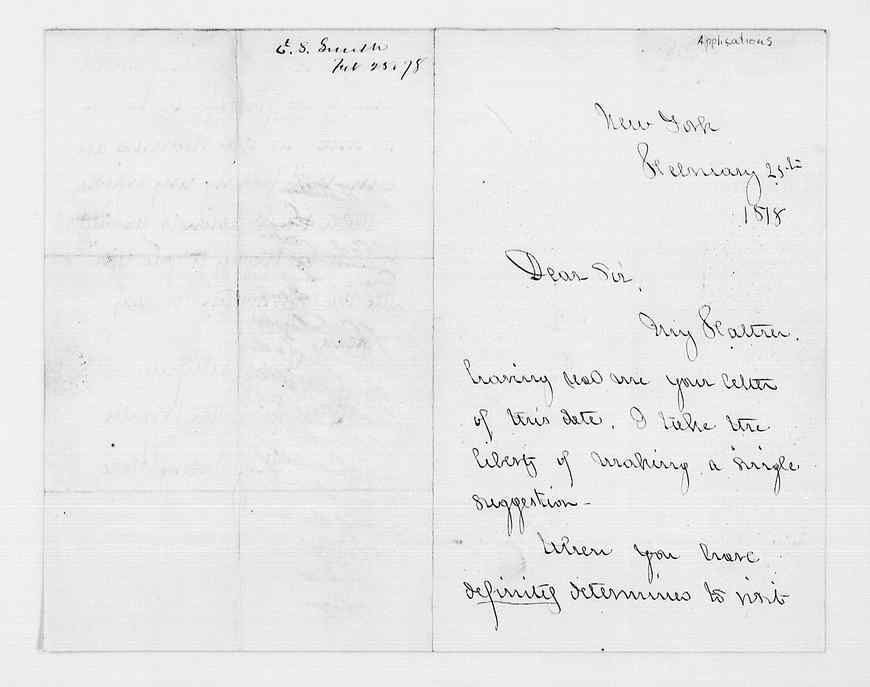 E. S. Smith
Feb 25. 78
Applications
New York
February 25th
1878
Dear Sir,
My Father,
having read me your letter
of this date, I take the
liberty of making a single
suggestion -
When you have
definitely determined to visit